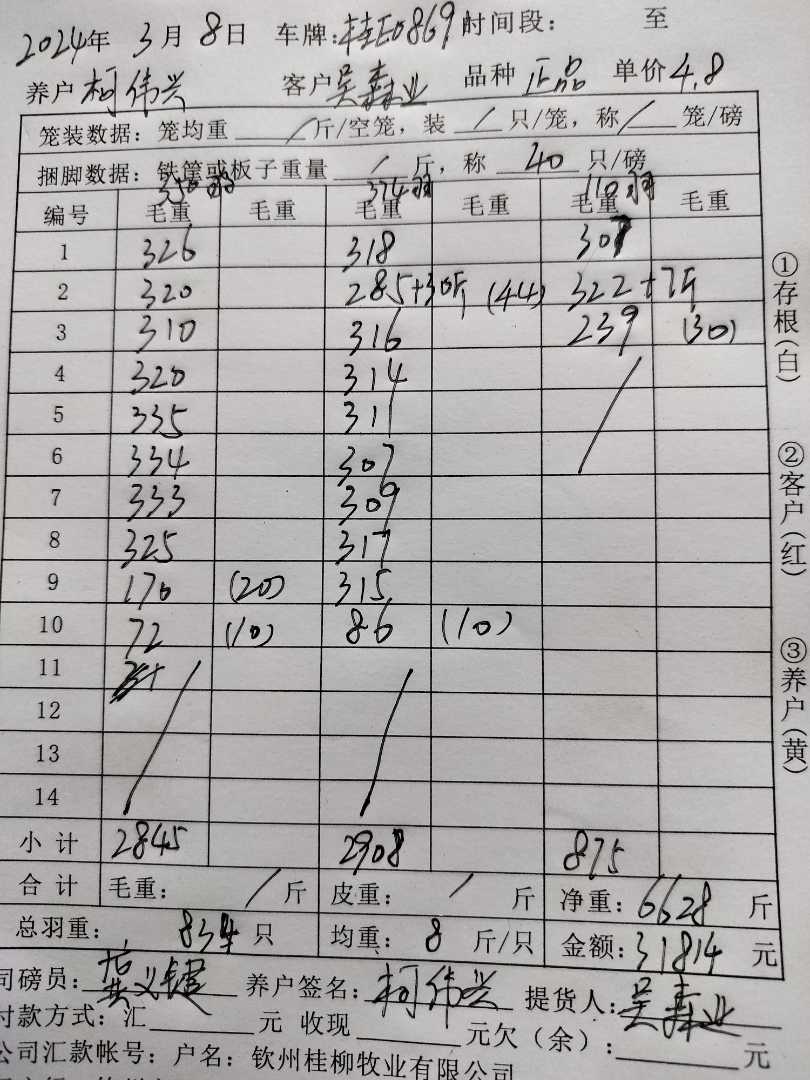 2024年 3月 8日 车牌:桂E0869 时间段: 至
养户 柯伟兴 客户 吴森业 品种 正品 单价 4.8
笼装数据: 笼均重 / 斤/空笼, 装 / 只/笼, 称 / 笼/磅
捆脚数据: 铁筐或板子重量 / 斤, 称 40 只/磅
350羽 374羽 110羽
编号 毛重 毛重 毛重 毛重 毛重 毛重
1 326 318 307
2 320 285+30斤 (44) 322+7斤
3 310 316 239 (30)
4 320 314
5 335 311
6 334 307
7 333 309
8 325 317
9 170 (20) 315
10 72 (10) 86 (10)
11
12
13
14
小计 2845 2908 875
合计 毛重: / 斤 皮重: / 斤 净重: 6628 斤
总羽重: 834 只 均重: 8 斤/只 金额: 31814 元
司磅员: 养户签名: 柯伟兴 提货人: 吴森业
付款方式: 汇 元 收现 元欠(余): 元
公司汇款帐号: 户名: 钦州桂柳牧业有限公司
①存根(白)
②客户(红)
③养户(黄)